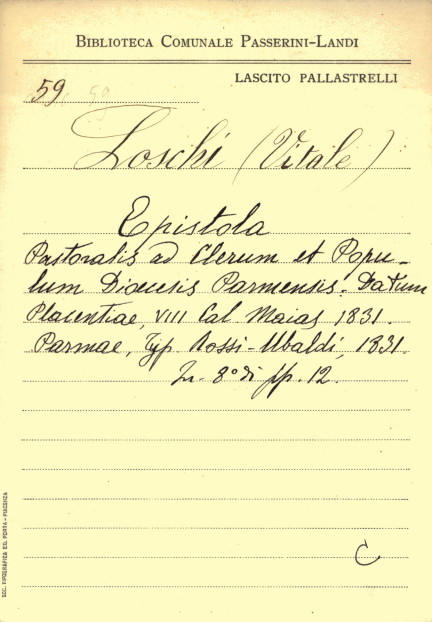 BIBLIOTECA COMUNALE PASSERINI-LANDI
LASCITO PALLASTRELLI
59 59
Loschi (Vitale)
Epistola
Pastoralis ad Clerum et Popu-
lum Dioecesis Parmensis. Datum
Placentiae, VIII Cal Maias 1831.
Parmae, Typ Rossi-Ubaldi, 1831.
In- 8° di pp. 12.
C
SOC. TIPOGRAFICA ED. PORTA - PIACENZA